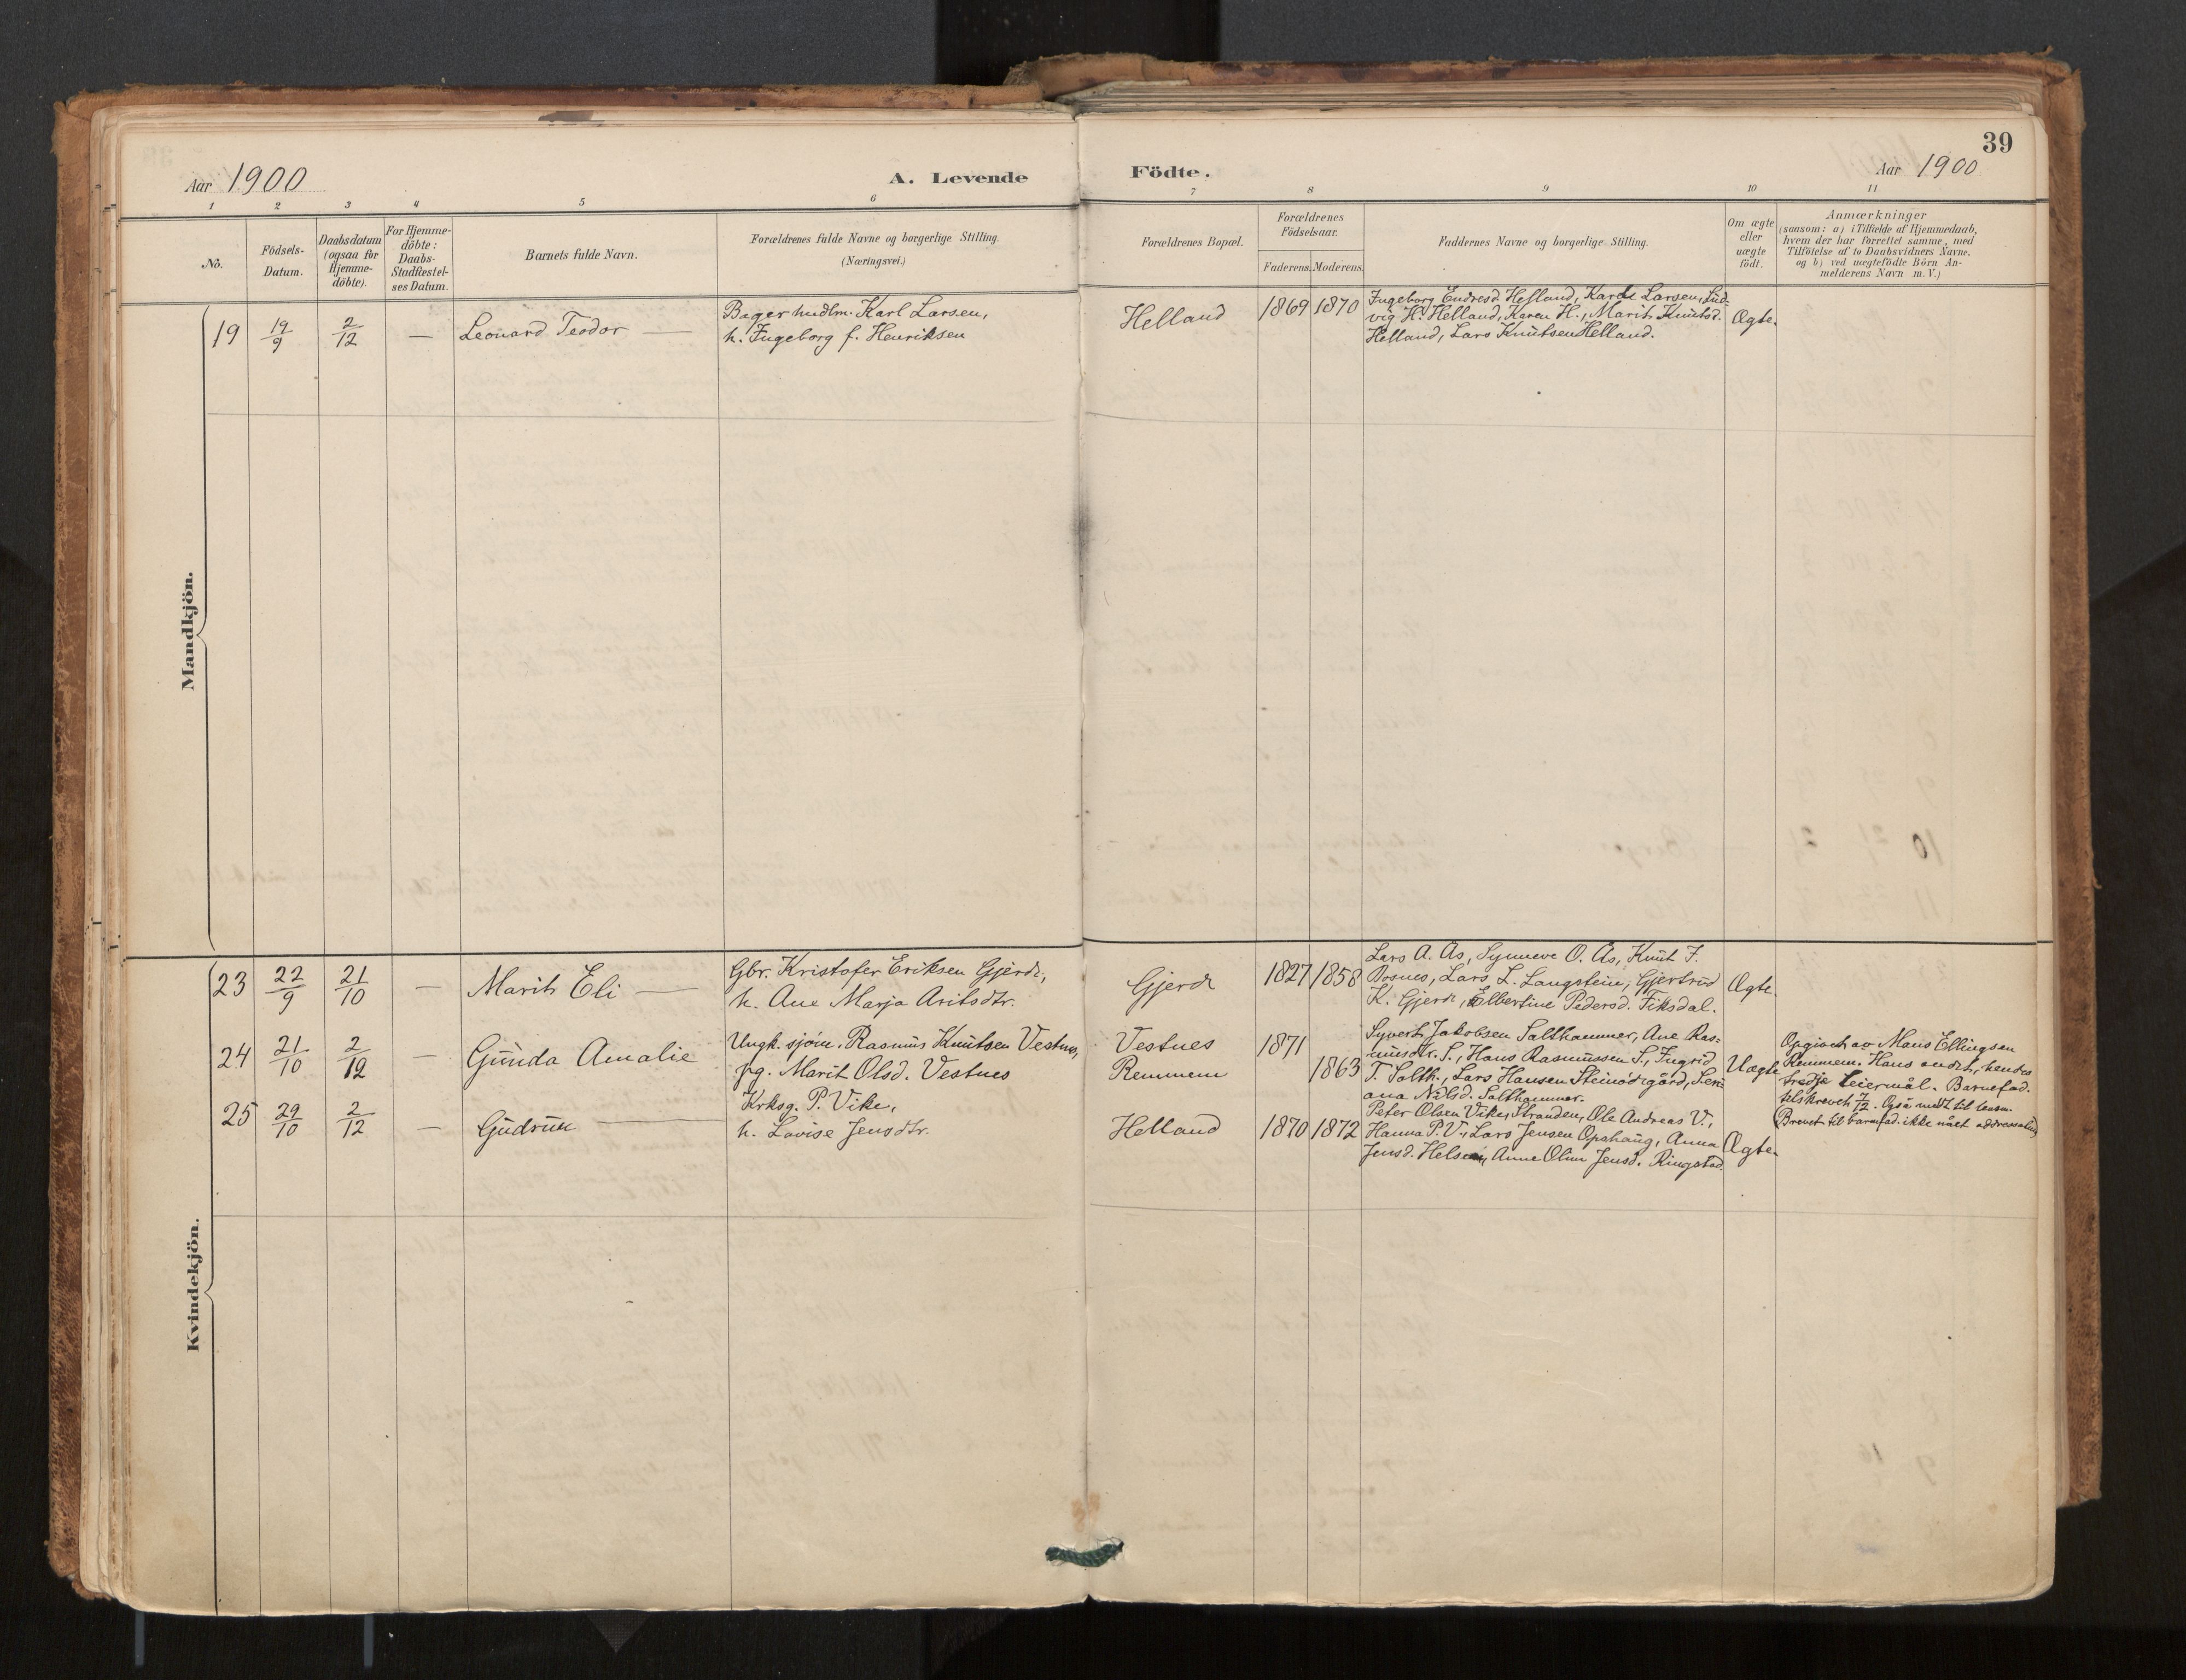 39
Aar 1900
A. Levende Födte.
Aar 1900
1 2 3 4 5 6 7 8 9 10 11
No.
Födsels-
Datum.
Daabsdatum
(ogsaa for
Hjemme-
döbte).
For Hjemme-
döbte:
Daabs-
Stadfæstel-
ses Datum.
Barnets fulde Navn.
Forældrenes fulde Navne og borgerlige Stilling.
(Næringsvei.)
Forældrenes Bopæl.
Forældrenes
Födselsaar.
Faderens. Moderens.
Faddernes Navne og borgerlige Stilling.
Om ægte
eller
uægte
födt.
Anmærkninger
(saasom: a) i Tilfælde af Hjemmedaab,
hvem der har forrettet samme, med
Tilföielse af to Daabsvidners Navne.
og b) ved uægtefödte Börn An-
melderens Navn m. V.)
Mandkjön.
19 19/9 2/12 — Leonard Teodor —
Bager hudlm. Karl Larsen,
h. Ingeborg f. Henriksen
Helland 1869 1870
Ingeborg Endresd. Helland, Karl Larsen, Lud-
vig H. Helland, Karen H., Marit Knutsd.
Helland, Lars Knutsen Helland.
Ægte.
Kvindekjön.
23 22/9 21/10 — Marit Eli —
Gbr. Kristofer Eriksen Gjerde,
h. Ane Marja Aritsdtr.
Gjerde 1827 1858
Lars A. Ås, Synneve O. Ås, Knut F.
Bosnes, Lars L. Langstein, Gjertrud
K. Gjerde, Elbertine Pedersd. Fiksdal.
Ægte.
24 21/10 2/12 — Gunda Amalie
Ungk. sjöm. Rasmus Knutsen Vestnes,
pg. Marit Olsd. Vestnes
Vestnes 1871
Remmem 1863
Syvert Jakobsen Salthammer, Ane Ras-
musdtr. S., Hans Rasmussen S., Ingrid
T. Salth., Lars Hansen Steinödegård, Seri-
ana Nilsd. Salthammer.
Uægte
Opgivet av Mons Ellingsen
Remmem. Hans andet, hendes
tredje leiermål. Barnefad.
tilskrevet 7/12. Også medt til lensm.
(Brevet til barnefad. ikke nået addressaten)
25 29/10 2/12 — Gudrun —
Krksg. P. Vike,
h. Lovise Jensdtr.
Helland 1870 1872
Peter Olsen Vike, Stranden, Ole Andreas V.,
Hanna P. V., Lars Jensen Opshaug, Anna
Jensd. Helsem, Anne Oline Jensd. Ringstad
Ægte.